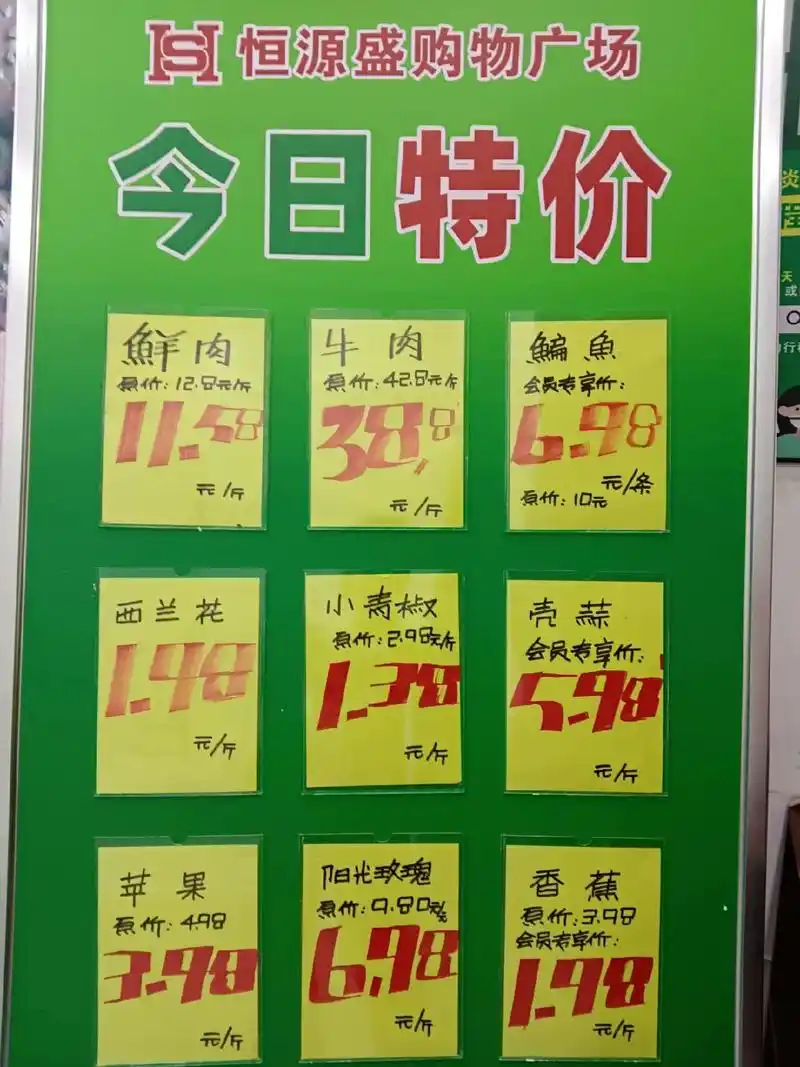 HS 恒源盛购物广场
今日特价
鲜肉
原价:12.8元/斤
11.58
元/斤
牛肉
原价:42.8元/斤
38.8
元/斤
鳊鱼
会员专享价:
6.98
元/条
原价:10元
西兰花
1.98
元/斤
小青椒
原价:2.98元/斤
1.38
元/斤
壳蒜
会员专享价:
5.98
元/斤
苹果
原价:4.98
3.98
元/斤
阳光玫瑰
原价:9.80元/斤
6.98
元/斤
香蕉
原价:3.98
会员专享价:
1.98
元/斤
天
或